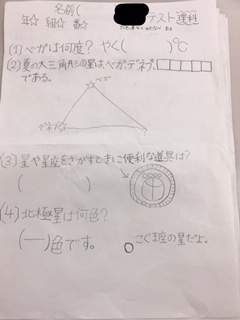 名前(
年 組 番 テスト 理科
(1)ベガは何度?やく( )℃
(2)夏の大三角形の星はベガ、デネブ、
である。
ベガ
デネブ
(3)星や星座をさがすときに便利な道具は?
( )
(4)北極星は何色?
( )色です。 こぐま座の星だよ。